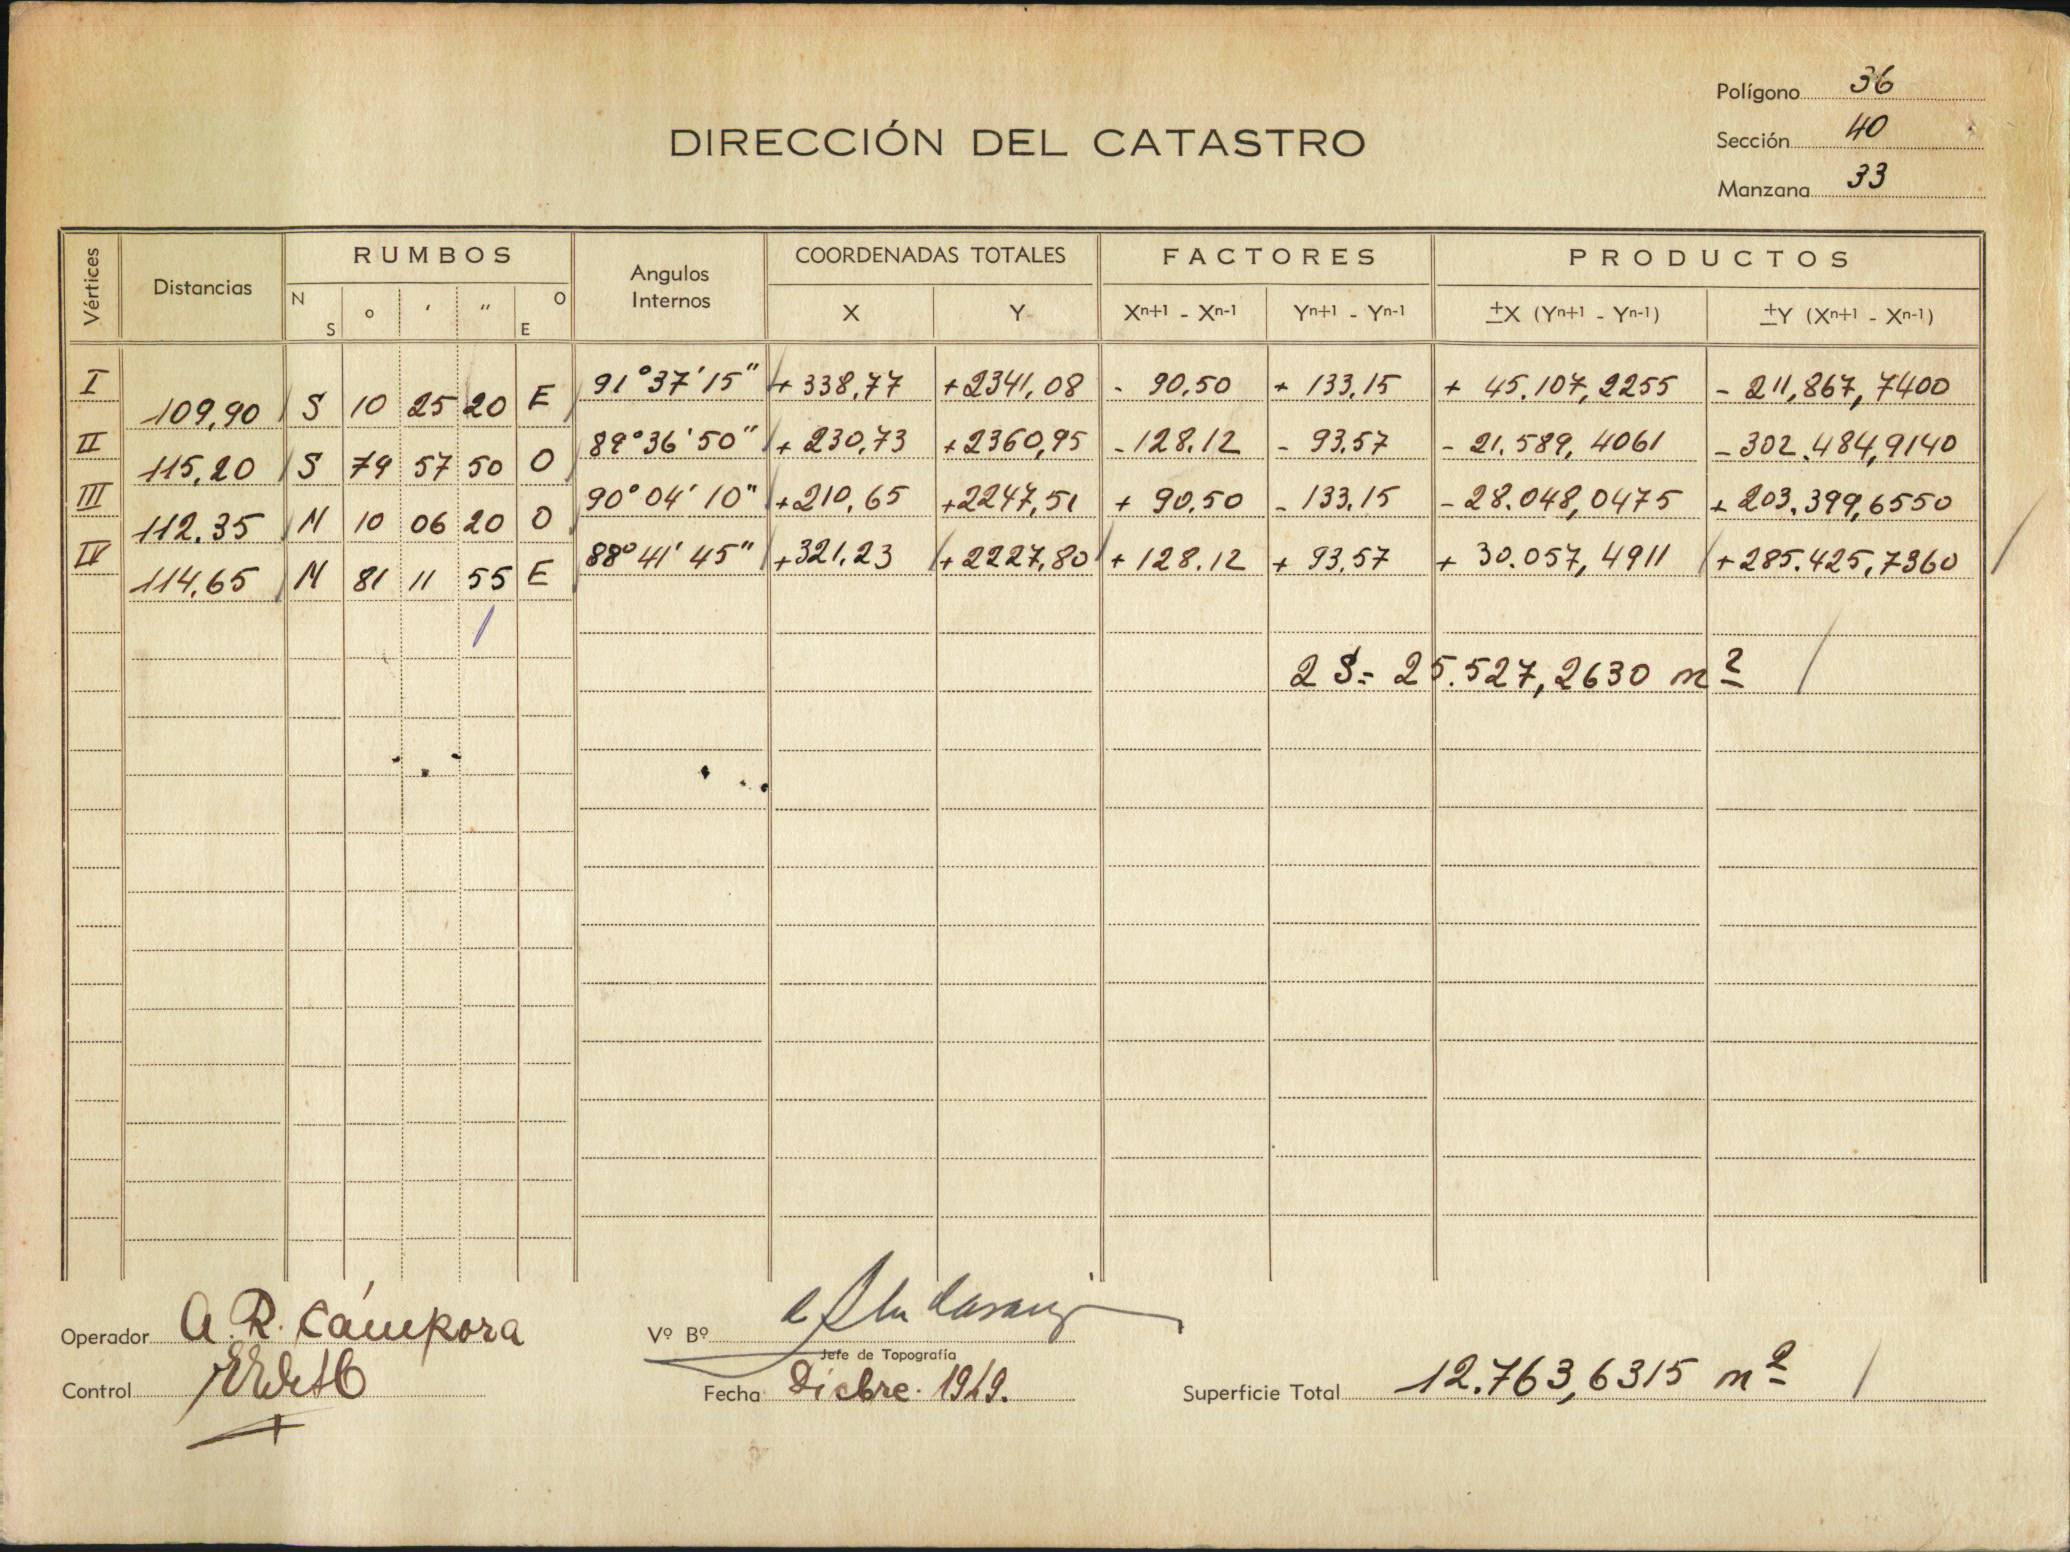 Polígono 36
DIRECCIÓN DEL CATASTRO
Sección 40
Manzana 33
Vértices Distancias RUMBOS Angulos Internos COORDENADAS TOTALES FACTORES PRODUCTOS
N S ° ′ ″ O E X Y Xⁿ⁺¹ - Xⁿ⁻¹ Yⁿ⁺¹ - Yⁿ⁻¹ ±X (Yⁿ⁺¹ - Yⁿ⁻¹) ±Y (Xⁿ⁺¹ - Xⁿ⁻¹)
I 91°37'15" +338,77 +2341,08 - 90.50 + 133,15 + 45.107,2255 - 211,867,7400
109,90 S 10 25 20 E
II 89°36'50" + 230,73 +2360,95 -128.12 - 93,57 - 21.589,4061 -302.484,9140
115,20 S 79 57 50 O
III 90°04'10" +210,65 +2247,51 + 90,50 -133,15 -28.048,0475 +203.399,6550
112.35 N 10 06 20 O
IV 88°41'45" +321,23 +2227,80 +128.12 + 93,57 + 30.057,4911 +285.425,7360
114,65 N 81 11 55 E
2 S= 25.527,2630 m²
Operador A. R. Cámpora Vº Bº
Jefe de Topografía
Control Fecha Dicbre. 1949. Superficie Total 12.763,6315 m²